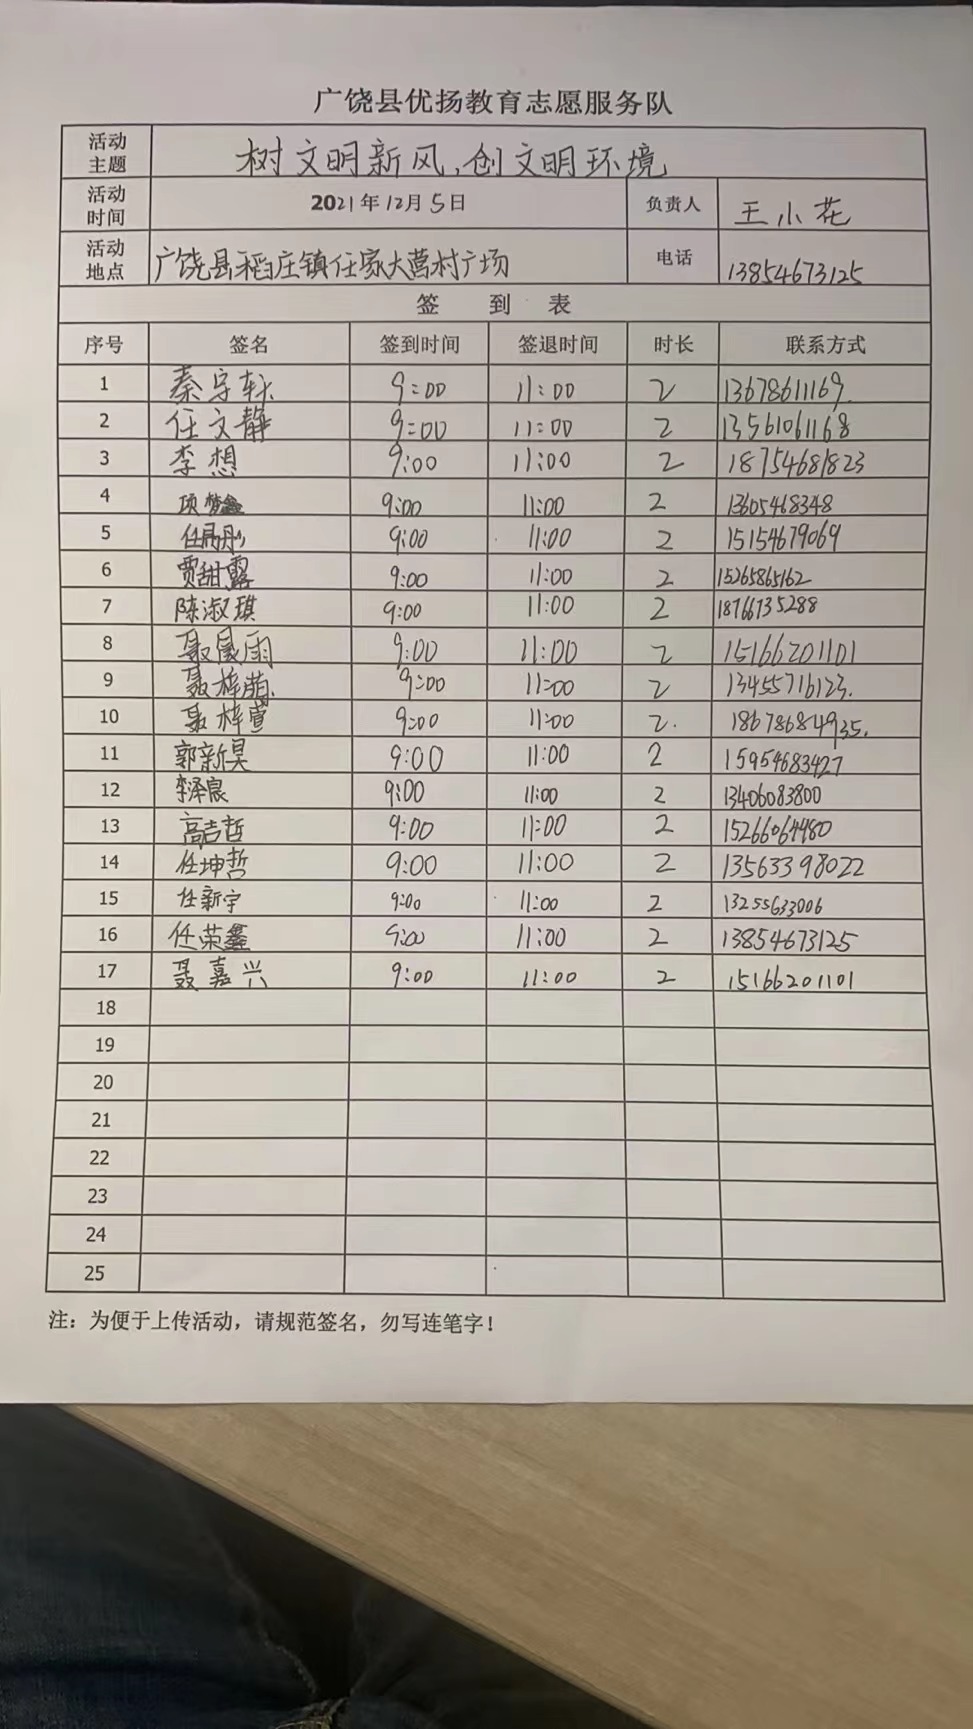 广饶县优扬教育志愿服务队
活动主题 树文明新风、创文明环境
活动时间 2021年12月5日 负责人 王小花
活动地点 广饶县稻庄镇任家大营村广场 电话 13854673125
签 到 表
序号 签名 签到时间 签退时间 时长 联系方式
1 秦宇轩 9:00 11:00 2 13678611169.
2 任文静 9:00 11:00 2 13561061168
3 李想 9:00 11:00 2 18754681823
4 项梦鑫 9:00 11:00 2 13605468348
5 9:00 11:00 2 15154679069
6 贾甜露 9:00 11:00 2 15265865162
7 陈淑琪 9:00 11:00 2 18766735288
8 聂晟雨 9:00 11:00 2 15166201101
9 聂梓萌. 9:00 11:00 2 13455716123.
10 聂梓萱 9:00 11:00 2. 18678684935.
11 郭新昊 9:00 11:00 2 15954683427
12 李泽宸 9:00 11:00 2 13406083800
13 高吉哲 9:00 11:00 2 15266064480
14 任坤哲 9:00 11:00 2 13563398022
15 任新宇 9:00 11:00 2 13255633006
16 任荣鑫 9:00 11:00 2 13854673125
17 聂嘉兴 9:00 11:00 2 15166201101
18
19
20
21
22
23
24
25
注：为便于上传活动，请规范签名，勿写连笔字！